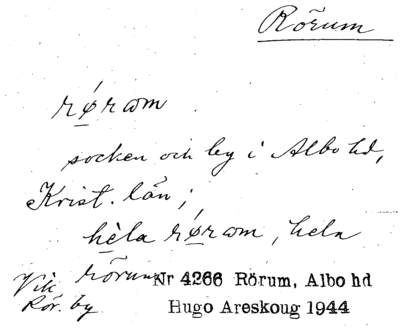 Rörum
rǿrωm
socken och by i Albo hd,
Krist. län;
hèla rǿrωm, hela
rörum
Vik
Rör. by
Nr 4266 Rörum, Albo hd
Hugo Areskoug 1944